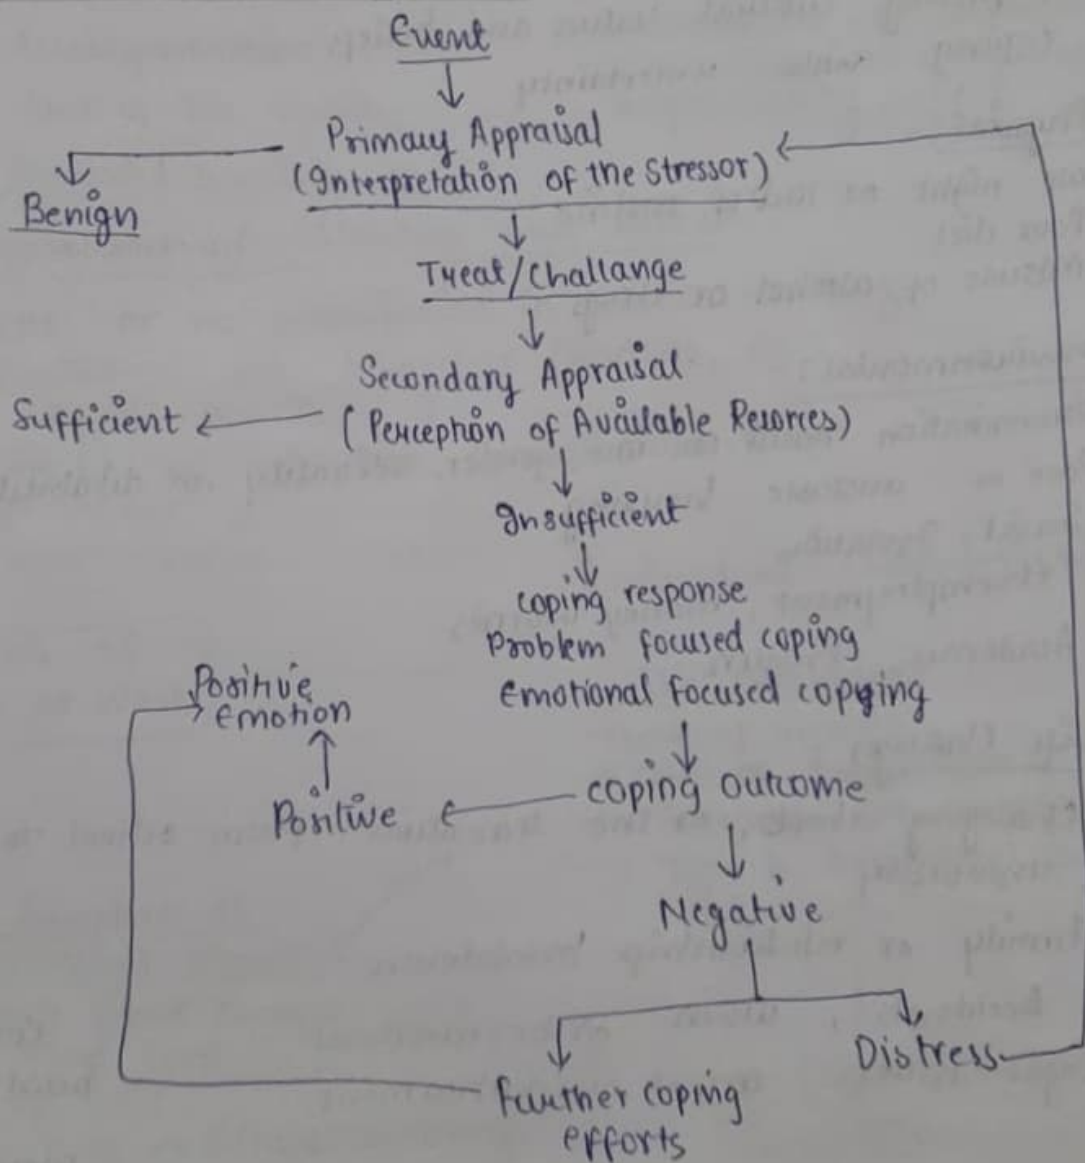 Event
Primary Appraisal
(Interpretation of the Stressor)
Benign
Treat/Challange
Secondary Appraisal
Sufficient
(Perception of Available Resorces)
Insufficient
Coping response
Problem focused coping
Emotional focused copying
Positive
Emotion
Coping outcome
Positive
Negative
Distress
Further coping
efforts